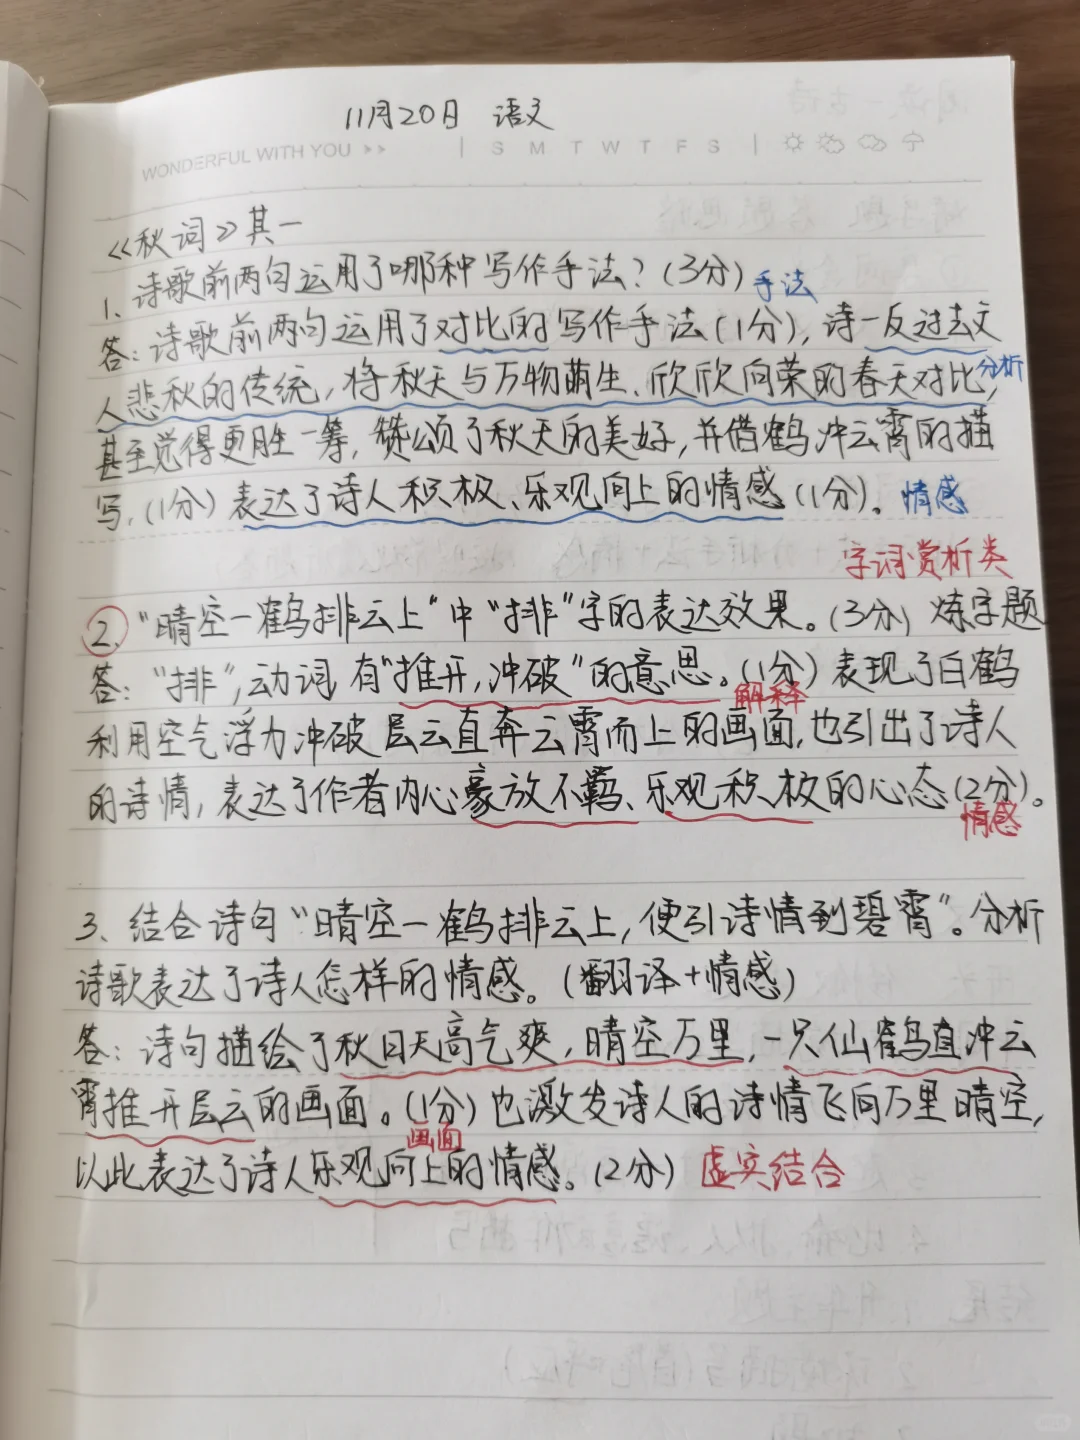 11月20日 语文
WONDERFUL WITH YOU >> | S M T W T F S |
《秋词》其一
1、诗歌前两句运用了哪种写作手法？(3分) 手法
答：诗歌前两句运用了对比的写作手法(1分)，诗一反过去文
人悲秋的传统，将秋天与万物萌生、欣欣向荣的春天对比， 分析
甚至觉得更胜一筹，赞颂了秋天的美好，并借鹤冲云霄的描
写，(1分)表达了诗人积极、乐观向上的情感(1分)。 情感
字词赏析类
2、"晴空一鹤排云上"中"排"字的表达效果。(3分) 炼字题
答："排"，动词 有"推开，冲破"的意思。(1分)表现了白鹤
解释
利用空气浮力冲破层云直奔云霄而上的画面，也引出了诗人
的诗情，表达了作者内心豪放不羁、乐观积极的心态(2分)。
情感
3、结合诗句"晴空一鹤排云上，便引诗情到碧霄"。分析
诗歌表达了诗人怎样的情感。(翻译+情感)
答：诗句描绘了秋日天高气爽，晴空万里，一只仙鹤直冲云
霄推开层云的画面。(1分)也激发诗人的诗情飞向万里晴空，
画面
以此表达了诗人乐观向上的情感。(2分) 虚实结合